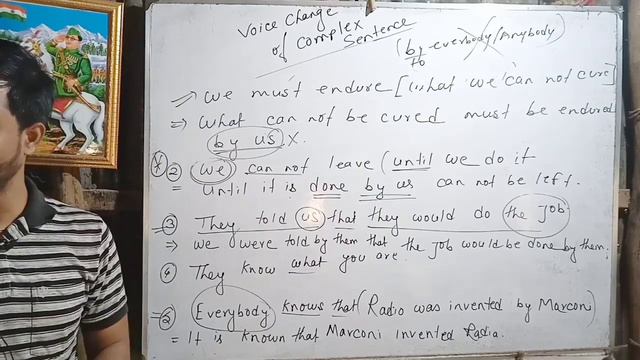 Voice Change
of Complex
Sentence
(by everybody/Anybody)
to
⇒ We must endure [what we can not cure]
⇒ What can not be cured must be endured
by us X.
2 We can not leave (until we do it
= Until it is done by us can not be left.
3 They told us that they would do the job
⇒ We were told by them that the job would be done by them.
4 They know what you are.
5 Everybody knows that (Radio was invented by Marconi)
= It is known that Marconi invented Radio.